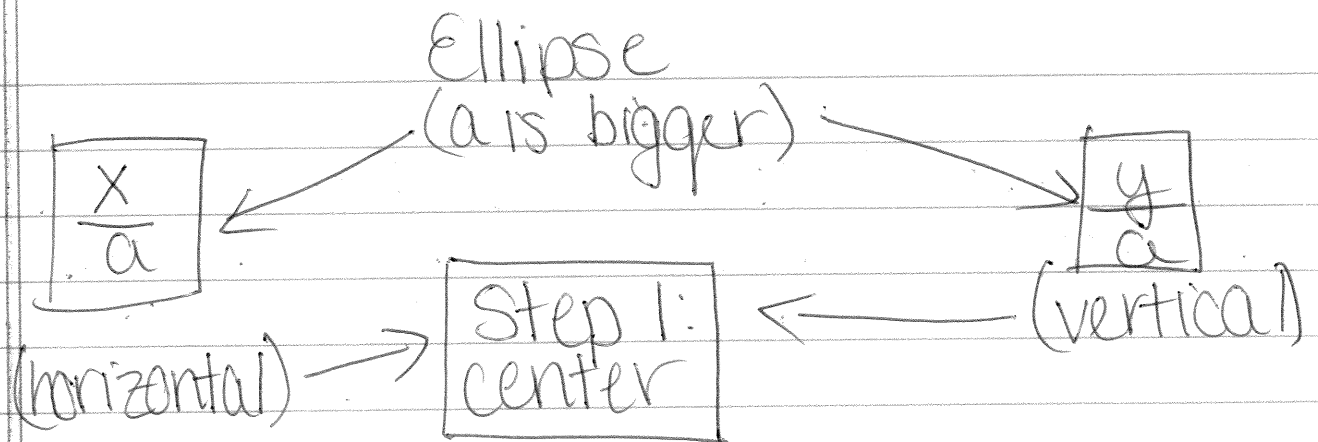 Ellipse
(a is bigger)
x
a
y
a
(horizontal)
Step 1:
center
(vertical)